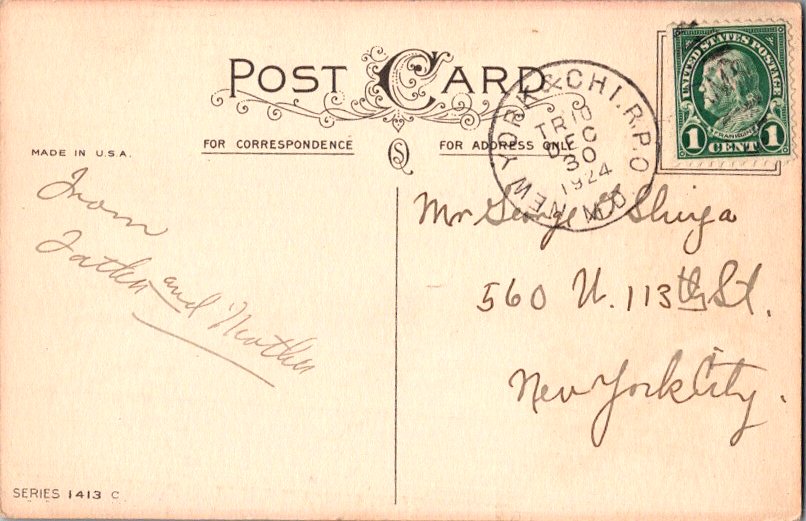 POST CARD
FOR CORRESPONDENCE
FOR ADDRESS ONLY
MADE IN U.S.A.
UNITED STATES POSTAGE
FRANKLIN
1 CENT 1
NEW YORK & CHI. R.P.O.
TR 10
DEC
30
1924
M.D.
From
Father and Mother
Mr George
560 W. 113th St.
New York City.
SERIES 1413 C